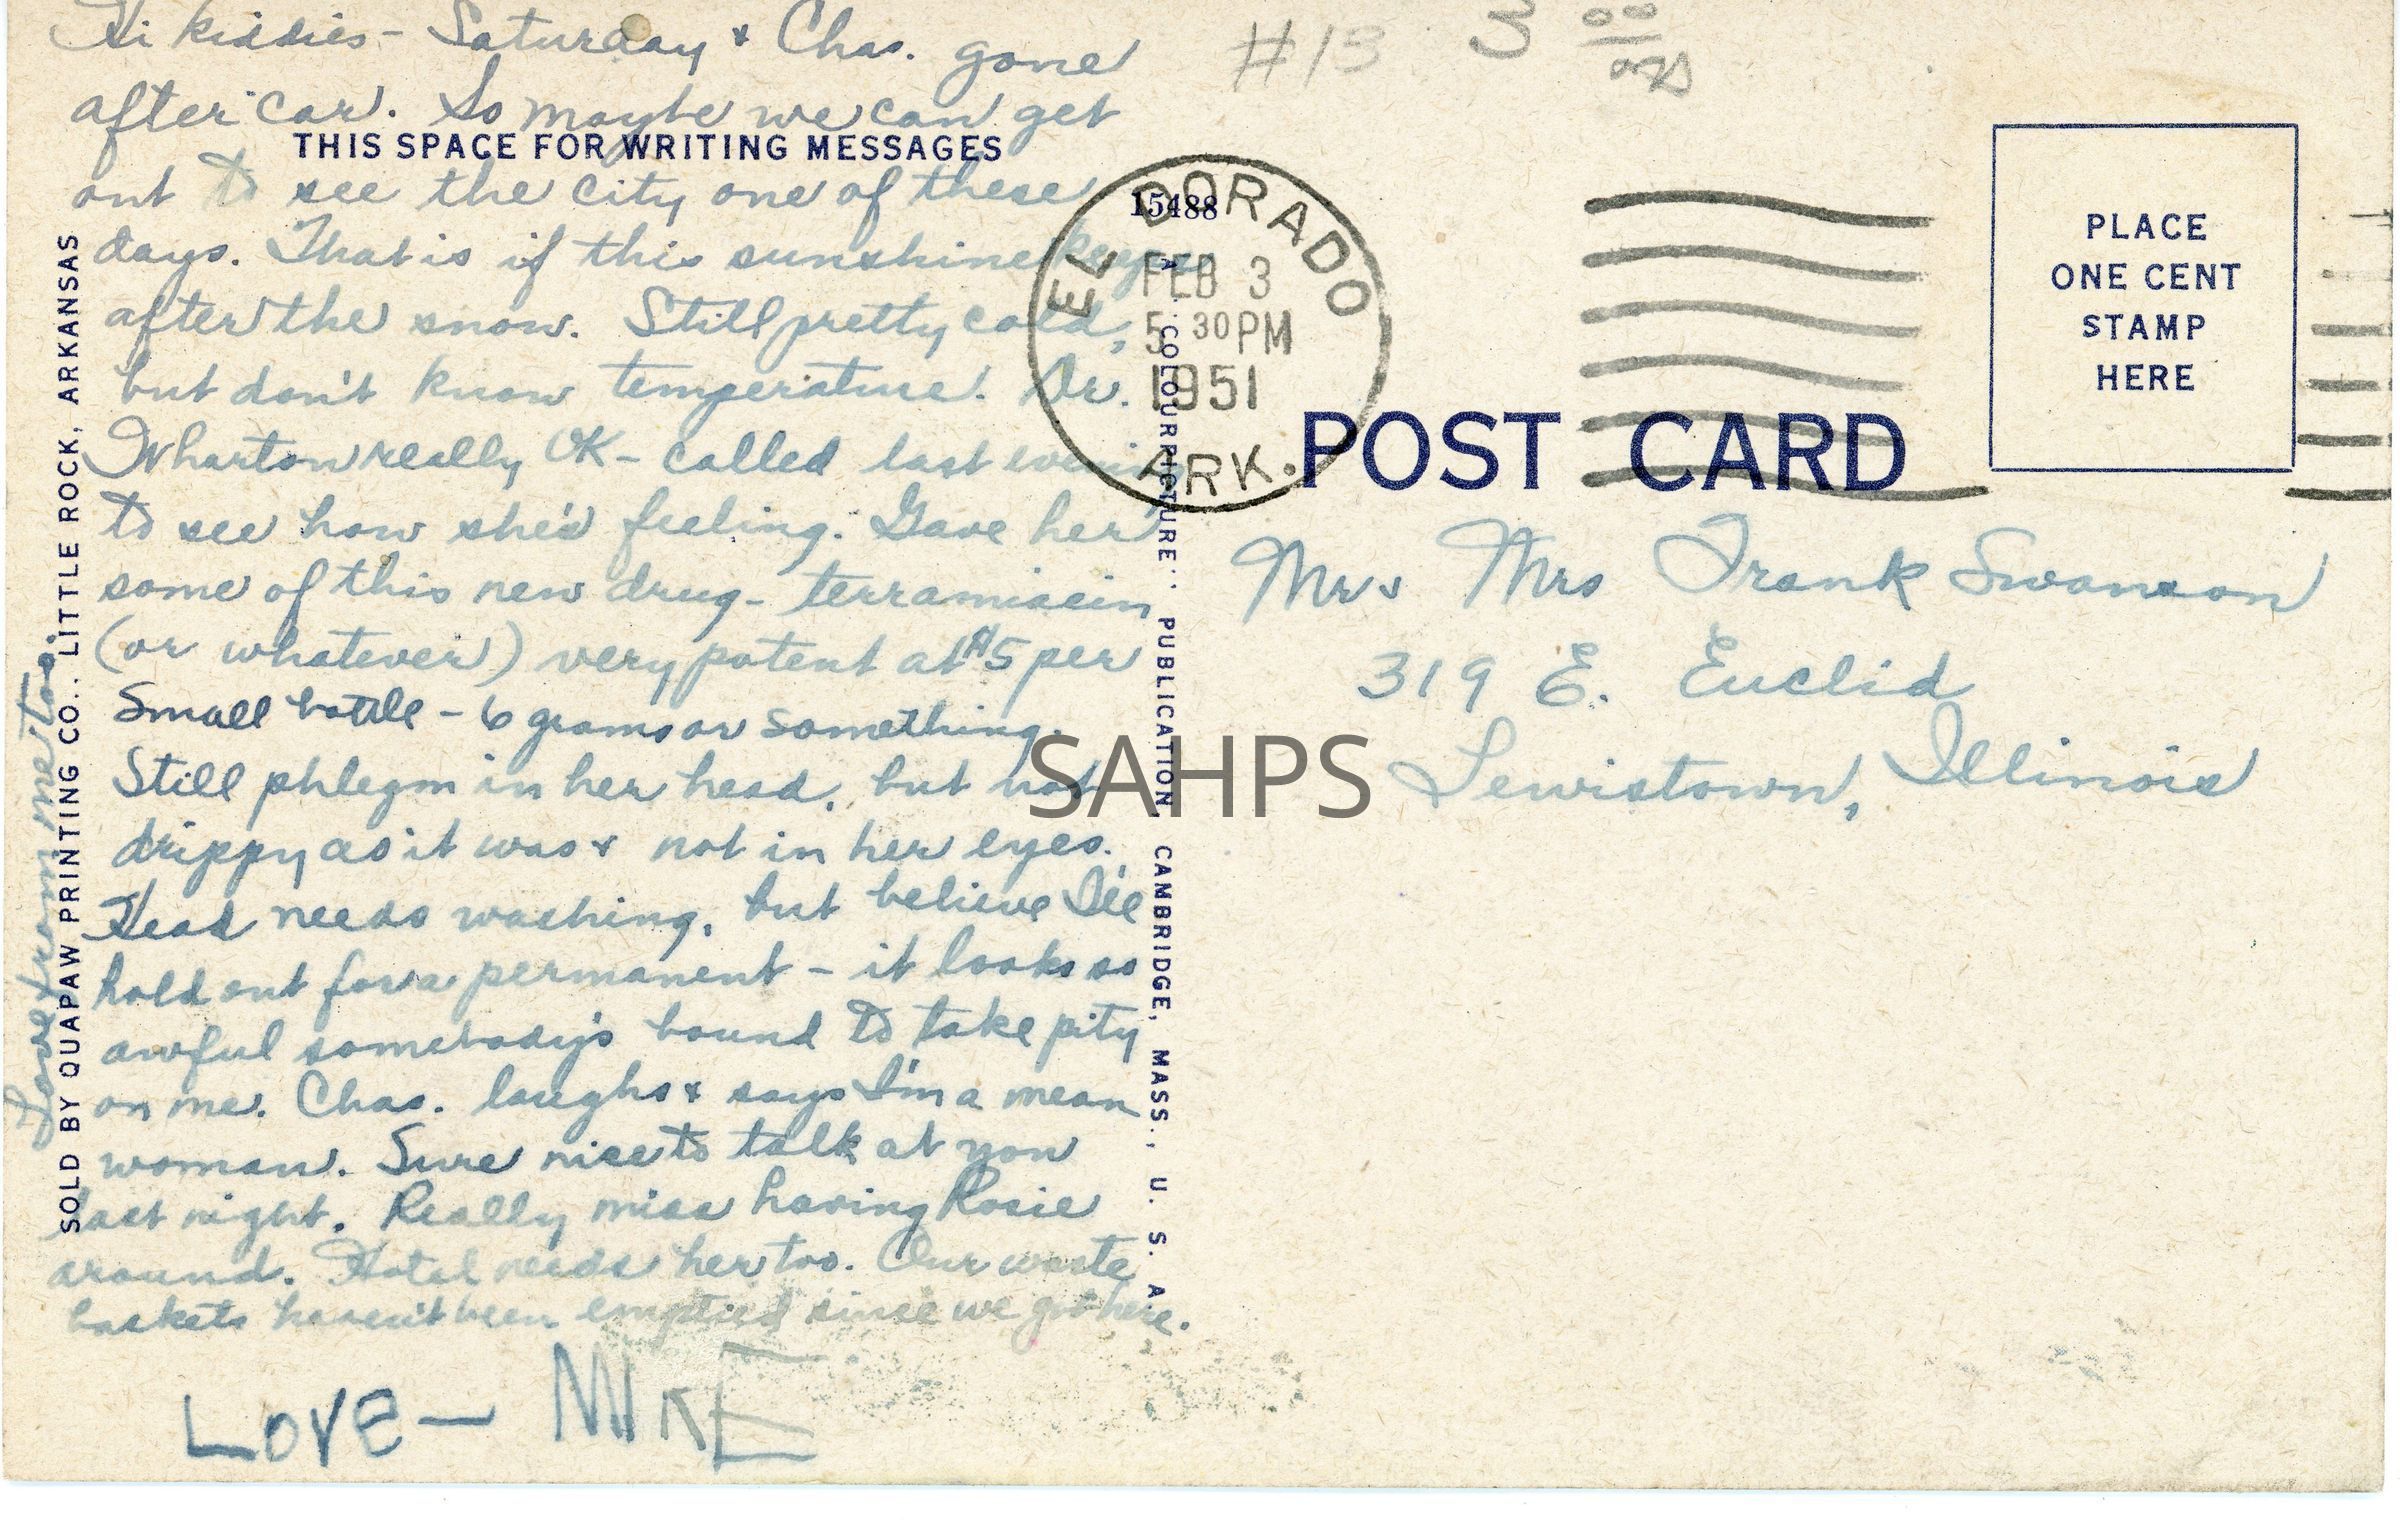 Hi kiddies - Saturday & Chas. gone
after car. So maybe we can get
THIS SPACE FOR WRITING MESSAGES
out to see the city one of these
days. That is if this sunshine keeps
after the snow. Still pretty cold,
but don't know temperature. Dr.
Wharton really OK - called last evening
to see how she's feeling. Gave her
some of this new drug - terramisein
(or whatever) very potent at $5 per
small bottle - 6 grams or something.
Still phlegm in her head, but not
drippy as it was & not in her eyes.
Head needs washing, but believe I'll
hold out for a permanent - it looks so
awful somebody's bound to take pity
on me. Chas. laughs & says I'm a mean
woman. Sure nice to talk at you
last night. Really miss having Rosie
around. Hotel needs her too. Our waste
baskets haven't been emptied since we got here.
LOVE - MIKE
Love from me too.
SOLD BY QUAPAW PRINTING CO., LITTLE ROCK, ARKANSAS
#13
3 00
15488
"COLOURPICTURE" PUBLICATION, CAMBRIDGE, MASS., U. S. A.
EL DORADO
FEB 3
5 30 PM
1951
ARK.
POST CARD
PLACE
ONE CENT
STAMP
HERE
Mr & Mrs Frank Swanson
319 E. Euclid
Lewistown, Illinois
SAHPS